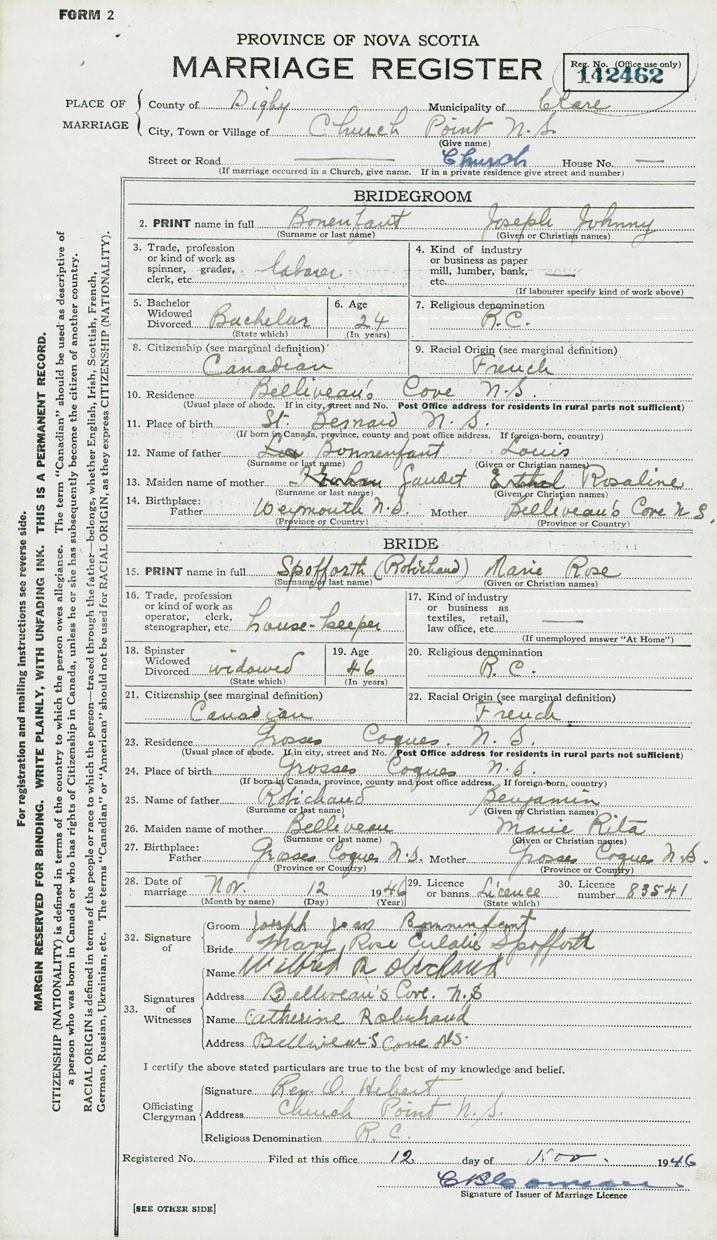 FORM 2
PROVINCE OF NOVA SCOTIA
MARRIAGE REGISTER
Reg. No. (Office use only)
142462
PLACE OF MARRIAGE
County of Digby Municipality of Clare
City, Town or Village of Church Point N.S.
(Give name)
Street or Road Church House No. —
(If marriage occurred in a Church, give name. If in a private residence give street and number)
BRIDEGROOM
2. PRINT name in full Bonenfant Joseph Johnny
(Surname or last name) (Given or Christian names)
3. Trade, profession or kind of work as spinner, grader, clerk, etc. laborer
4. Kind of industry or business as paper mill, lumber, bank, etc. —
(If labourer specify kind of work above)
5. Bachelor Widowed Divorced Bachelor
(State which)
6. Age 24
(In years)
7. Religious denomination
R.C.
8. Citizenship (see marginal definition)
Canadian
9. Racial Origin (see marginal definition)
French
10. Residence Belliveau's Cove N.S.
(Usual place of abode. If in city, street and No. Post Office address for residents in rural parts not sufficient)
11. Place of birth St. Bernard N.S.
(If born in Canada, province, county and post office address. If foreign-born, country)
12. Name of father Bonnenfant Louis
(Surname or last name) (Given or Christian names)
13. Maiden name of mother Gaudet Rosaline
(Surname or last name) (Given or Christian names)
14. Birthplace: Father Weymouth N.S. Mother Belliveau's Cove N.S.
(Province or Country) (Province or Country)
BRIDE
15. PRINT name in full Spofforth (Robichaud) Marie Rose
(Surname or last name) (Given or Christian names)
16. Trade, profession or kind of work as operator, clerk, stenographer, etc. house-keeper
17. Kind of industry or business as textiles, retail, law office, etc. —
(If unemployed answer "At Home")
18. Spinster Widowed Divorced widowed
(State which)
19. Age 46
(In years)
20. Religious denomination
R.C.
21. Citizenship (see marginal definition)
Canadian
22. Racial Origin (see marginal definition)
French
23. Residence Grosses Coques N.S.
(Usual place of abode. If in city, street and No. Post Office address for residents in rural parts not sufficient)
24. Place of birth Grosses Coques N.S.
(If born in Canada, province, county and post office address. If foreign-born, country)
25. Name of father Robichaud Benjamin
(Surname or last name) (Given or Christian names)
26. Maiden name of mother Belliveau Marie Rita
(Surname or last name) (Given or Christian names)
27. Birthplace: Father Grosses Coques N.S. Mother Grosses Coques N.S.
(Province or Country) (Province or Country)
28. Date of marriage Nov. 12 1946
(Month by name) (Day) (Year)
29. Licence or banns Licence
(State which)
30. Licence number 83541
32. Signature of
Groom Joseph Jean Bonnenfant
Bride Mary Rose Eulalie Spofforth
33. Signatures of Witnesses
Name Wilfred Robichaud
Address Belliveau's Cove. N.S
Name Catherine Robichaud
Address Belliveau's Cove N.S.
I certify the above stated particulars are true to the best of my knowledge and belief.
Officiating Clergyman
Signature Rev. O. Hebert
Address Church Point N.S.
Religious Denomination R.C.
Registered No. Filed at this office 12 day of Nov. 1946
Signature of Issuer of Marriage Licence
[SEE OTHER SIDE]
For registration and mailing instructions see reverse side.
MARGIN RESERVED FOR BINDING. WRITE PLAINLY, WITH UNFADING INK. THIS IS A PERMANENT RECORD.
CITIZENSHIP (NATIONALITY) is defined in terms of the country to which the person owes allegiance. The term "Canadian" should be used as descriptive of
a person who was born in Canada or who has rights of Citizenship in Canada, unless he or she has subsequently become the citizen of another country.
RACIAL ORIGIN is defined in terms of the people or race to which the person—traced through the father—belongs, whether English, Irish, Scottish, French,
German, Russian, Ukrainian, etc. The terms "Canadian" or "American" should not be used for RACIAL ORIGIN, as they express CITIZENSHIP (NATIONALITY).